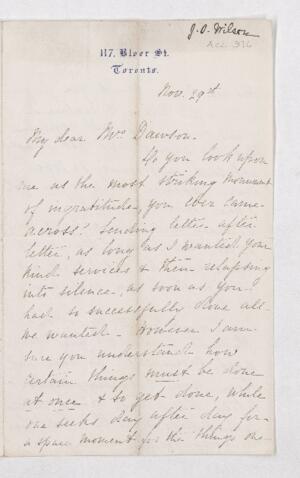 J. O. Wilson
Acc. 376
117, Bloor St.
Toronto.
Nov. 29th
My dear Mrs Dawson.
Do you look upon
me as the most striking monument
of ingratitude, you ever came
across? Sending letter after
letter, as long as I wanted your
kind services & then relapsing
into silence, as soon as you
had so successfully done all
we wanted - However I am
sure you understand how
certain things must be done
at once & so get done, while
one seeks day after day for
a spare moment for the things one